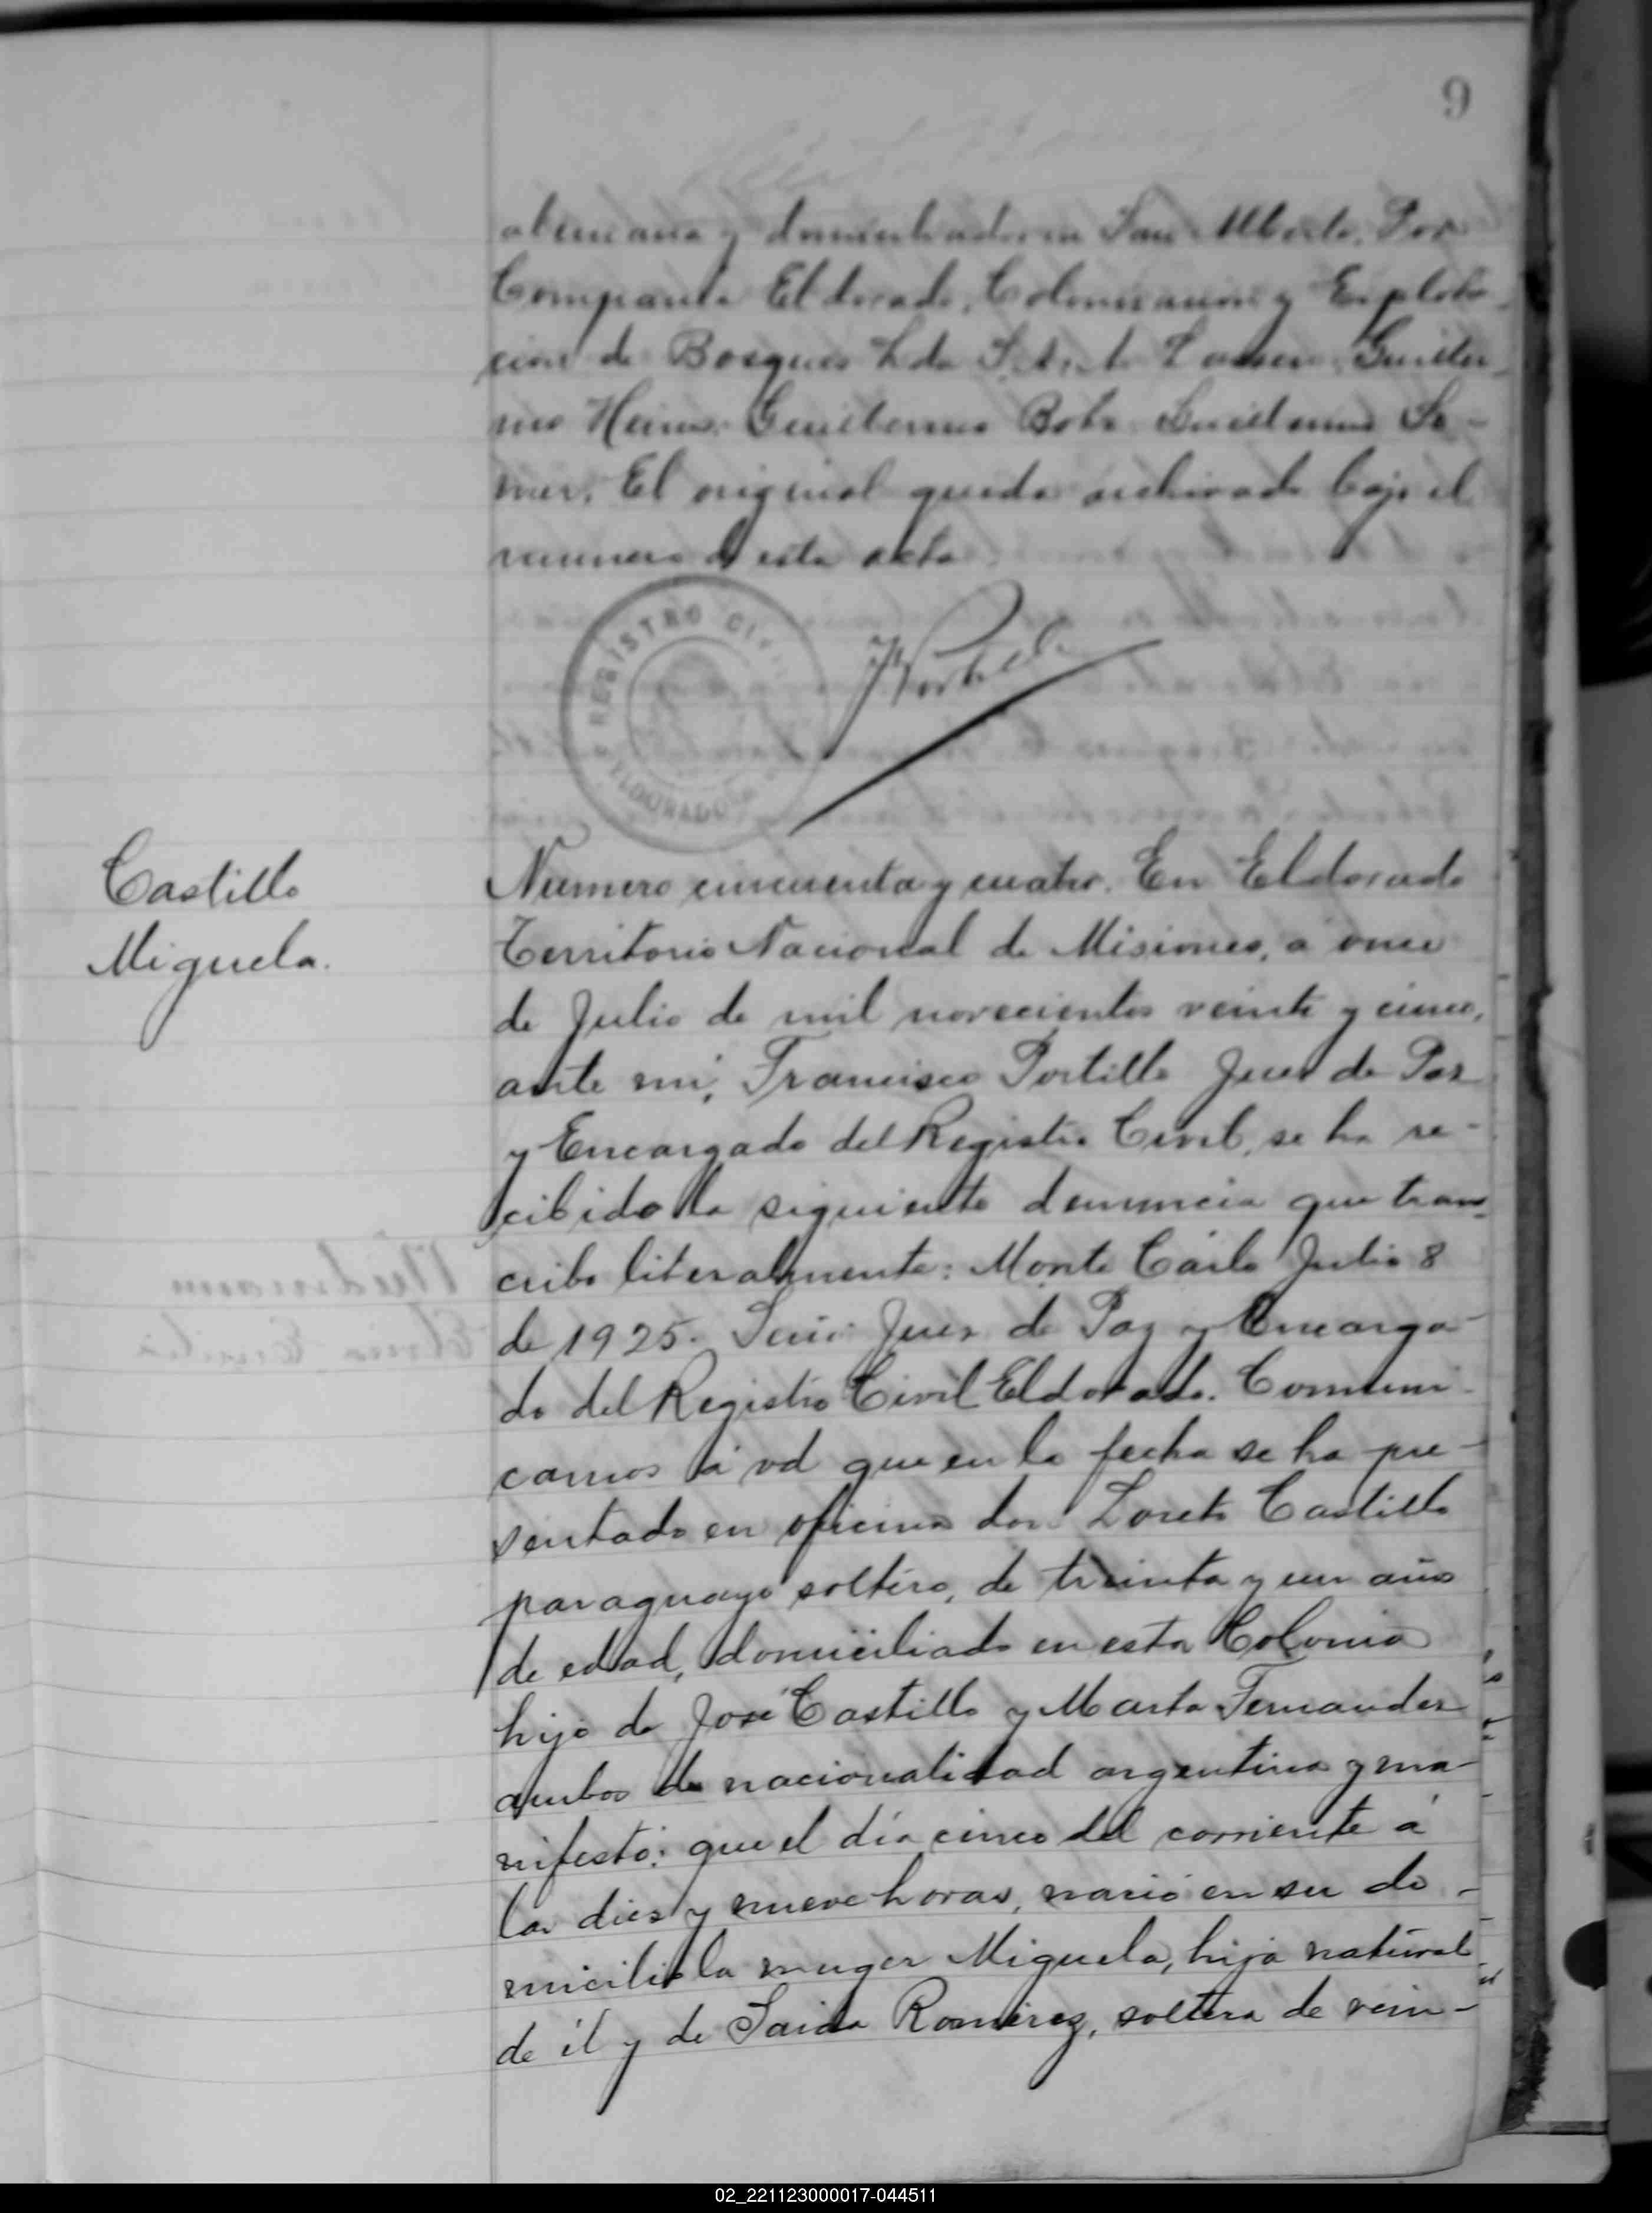 9
alemana y domiciliados en San Alberto. Por
Compania Eldorado, Colonizacion y Explota-
cion de Bosques Lda S. A. Guiller-
mo Guillermo Guillermo
El original queda archivado bajo el
numero de esta acta
REGISTRO CIVIL
ELDORADO
Castillo
Miguela.
Numero cincuenta y cuatro. En Eldorado
Territorio Nacional de Misiones, a once
de Julio de mil novecientos veinte y cinco,
ante mi, Francisco Portillo Juez de Paz
y Encargado del Registro Civil, se ha re-
cibido la siguiente denuncia que trans-
cribo literalmente: Monte Carlo Julio 8
de 1925. Señor Juez de Paz y Encarga-
do del Registro Civil Eldorado. Comuni-
camos á vd que en la fecha se ha pre-
sentado en oficina don Loreto Castillo
paraguayo soltero, de treinta y un años
de edad, domiciliado en esta Colonia
hijo de José Castillo y Marta Fernandez
ambos de nacionalidad argentina y ma-
nifestó: que el día cinco del corriente á
las diez y nueve horas, nació en su do-
micilio la muger Miguela, hija natural
de él y de Saida Romirez, soltera de vein-
02_221123000017-044511